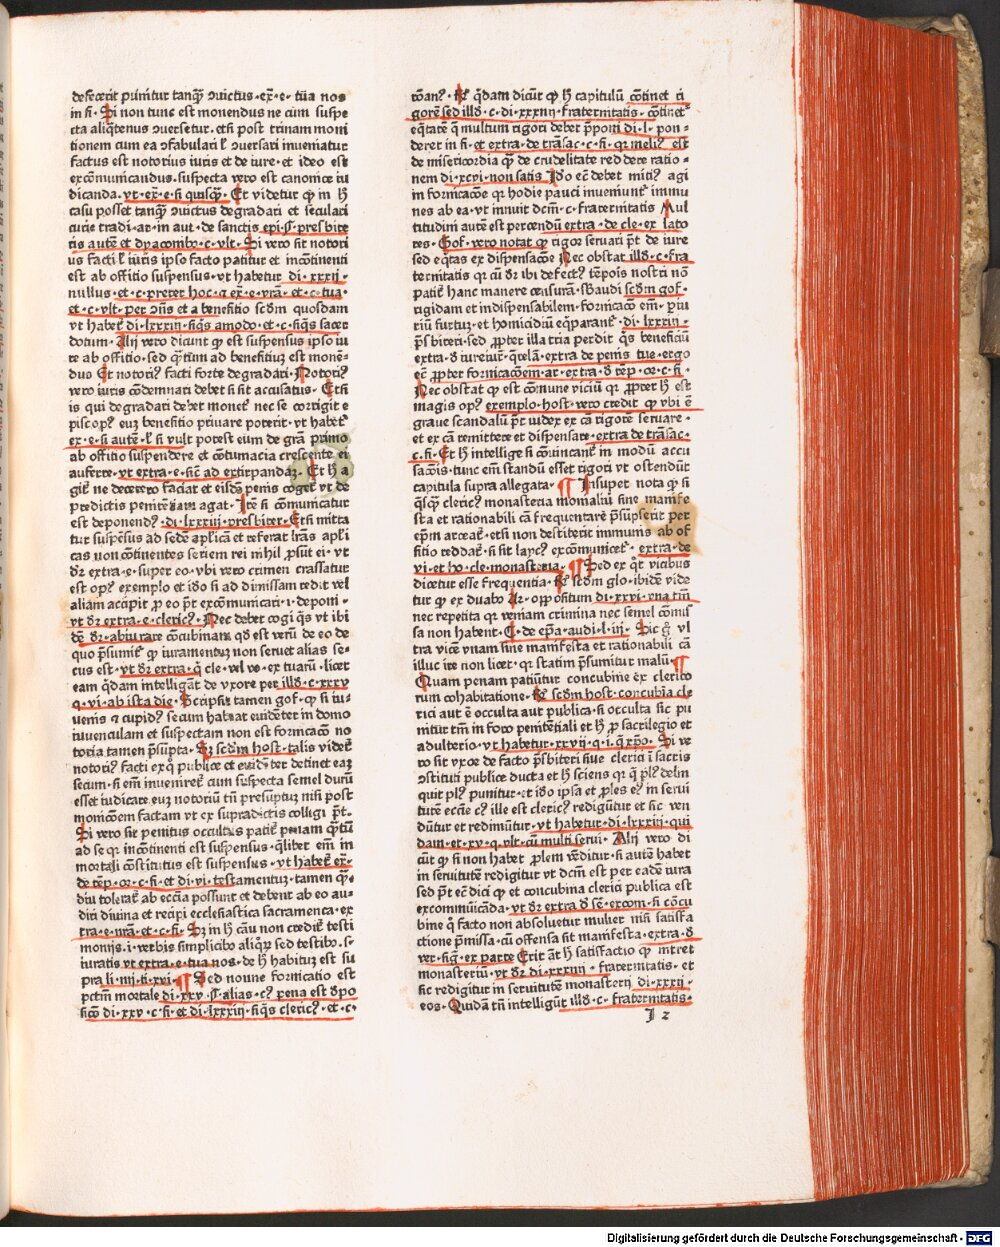 defecerit punitur tanq̄ ꝯuictus · ex̄ · e · tua nos
in fi · Si non tunc est monendus ne cum suspe
cta aliq̄tenus ꝯuersetur · etsi post trinam moni
tionem cum ea ꝯfabulari ł ꝯuersari inueniatur
factus est notorius iuris et de iure · et ideo est
excōmunicandus · suspecta vero est canonice iu
dicanda · vt · ex̄ · e · si quisq̄ · Et videtur ꝙ in h
casu posset tanq̄ ꝯuictus degradari et seculari
curie tradi · ar · in aut · de sanctis epi · ¶ · presbite
ris autē et dyaconib9 · c · vlt · Si vero sit notori
us facti ł iuris ipso facto patitur et incōtinenti
est ab offitio suspensus · vt habetur di · xxxij ·
nullus · et · c · preter hoc · q̄ ex̄ · e · vr̄am · et · c · tua ·
et · c · vlt · per om̄s et a benefitio scd̄m quosdam
vt habet᷑ di · lxxxiij · siq̄s amodo · et · c · siq̄s sacer
dotum · Alij vero dicunt ꝙ est suspensus ipso iu
re ab offitio · sed q̄tum ad benefitiuȝ est monē=
duo Et notori9 facti forte degradari · Notori9
vero iuris cōdemnari debet si sit accusatus · Etsi
is qui degradari debet monet᷑ nec se corrigit e
piscop9 euȝ benefitio priuare poterit · vt habet᷑
ex · e · si autē · ł si vult potest eum de grā primo
ab offitio suspendere et cōtumacia crescente ei
auferre · vt extra · e · sic̄ ad extirpandaȝ · Et h a
git᷑ ne decetero faciat et eisdē penis coget᷑ vt de
predictis penitētiam agat · Itē si cōmunicatur
est deponend9 · di · lxxxiij · presbiter · Etsi mitta
tur suspēsus ad sedē aplicā et referat lr̄as apli
cas non cōtinentes seriem rei nihil ꝓsūt ei · vt
dr̄ extra · e · super eo · vbi vero crimen crassatur
est op9 exemplo et iđo si ad dimissam redit vel
aliam accipit ꝓ eo pn̄t excōmunicari · i · deponi ·
vt dr̄ extra · e · cleric9 · Nec debet cogi q̄s vt ibi
dē dr̄ · abiurare cōcubinam qđ est verū de eo de
quo p̄sumit᷑ ꝙ iuramentuȝ non seruet alias se
cus est · vt dr̄ extra · q̄ cle · vel vo · ex tuarū · licet
eam q̄dam intelligāt de vxore per illđ · c · xxxv
q · vi · ab ista die · Scripsit tamen gof · ꝙ si iu=
uenis q̄ cupid9 secum habeat euidēter in domo
iuuenculam et suspectam non est fornicacō no
toria tamen p̄supta · Sȝ scd̄m host · talis videt᷑
notori9 facti exq̄ publice et euidēter detinet eaȝ
secum · si em̄ inueniret᷑ cum suspecta semel durū
esset iudicare euȝ notoriū tn̄ presuptuȝ nisi post
monicōem factam vt ex supradictis colligi pn̄t ·
Si vero sit penitus occultus patit᷑ penam q̄tū
ad se qr incōtinenti est suspensus · q̄libet em̄ in
mortali cōstitutus est suspensus · vt habet᷑ ex̄ ·
de tēp · or · c · fi · et di · vi · testamentuȝ · tamen q̄=
diu tolerat᷑ ab eccīa possunt et debent ab eo au=
diri diuina et recipi ecclesiastica sacramenta · ex
tra · e · nr̄ā · et · c · fi · Sȝ in h cāu non credit᷑ testi
monijs · i · verbis simplicib9 aliqr̄ sed testib9 · s ·
iuratis vt extra · e · tua nos · de h habitus est su
pra · li · iij · ti · xvi · ¶ Sed nounc fornicatio est
pctm̄ mortale di · xxv · ¶ · alias · c9 pena est dp̄o
sicō di · xxv · c · fi · et di · lxxxiij · siq̄s cleric9 · et · c ·
rōan9 · Rc̄ q̄dam dicūt ꝙ h capitulū cōtinet ri
gorē sed illđ · c · di · xxxiiij · fraternitatis · cōtinet
eq̄tatē q̄ multum rigori debet p̄poni di · l · pon=
deret in fi · et extra · de trāsac · c · fi · qr meli9 est
de misericordia ꝙ de crudelitate reddere ratio=
nem di · xcvi · non satis Iđo eē debet miti9 agi
in fornicacōe qr hodie pauci inueniunt᷑ immu
nes ab ea · vt innuit dcm̄ · c · fraternitatis Mul
titudini autē est parcendū extra · de cle · ex · lato
res · Gof · vero notat ꝙ rigor seruari pn̄t de iure
sed eq̄tas ex dispensacōe Nec obstat illđ · c · fra
ternitatis qr cū dr̄ ibi defect9 tēpois nostri nō
patit᷑ hanc manere cēsurā · sbaudi scd̄m gof ·
rigidam et indispensabilem · fornicacō em̄ · piu
riū furtuȝ · et homicidiū eq̄parant᷑ · di · lxxxiij ·
p̄sbiteri · sed ꝓpter illa tria perdit q̄s beneficiū
extra · đ iureiur̄ · q̄relā · extra de penis tue · ergo
eē ꝓpter fornicacōem · ar · extra · đ tēp · or · c · fi ·
Nec obstat ꝙ est cōmune viciū qr ꝓpter h est
magis op9 exemplo · host · vero credit ꝙ vbi ē
graue scandalū pn̄t iudex ex cā rigorē seruare ·
et ex cā remittere et dispensare · extra de trāsac ·
c · fi · Et h intellige si cōuincant᷑ in modū accu
sacōis · tunc em̄ standū esset rigori vt ostendūt
capitula supra allegata · ¶ Insuper nota ꝙ si
q̄sq̄ cleric9 monasteria monialiū sine manife
sta et rationabili cā frequentare p̄supserit per
ep̄m arceat᷑ · etsi non destiterit immunis ab of
fitio reddat᷑ · si sit layc9 excōmunicet᷑ · extra · de
vi · et ho · cle · monasteria · ¶ Sed ex q̄t vicibus
dicetur esse frequentia · Rc̄ scd̄m glo · ibidē vide
tur ꝙ ex duab9 Ar · opp̄ofitum di · xxvi · vna tm̄
nec repetita qr veniam crimina nec semel cōmis
sa non habent · C · de ep̄a · audi · l · iij · Sic ḡ vl
tra vicē vnam sine manifesta et rationabili cā
illuc ire non licet · qr statim p̄sumitur malū · ¶
Quam penam patiūtur concubine ex clerico
rum cohabitatione · Rc̄ scd̄m host · concubia cle
rici aut ē occulta aut publica · si occulta sic pu
nitur tm̄ in foro penitētiali et h ꝓ sacrilegio et
adulterio · vt habetur · xxvij · q · i · q̄ xp̄o · Si ve
ro sit vxor de facto p̄sbiteri siue clerici ī sacris
ꝯstituti publice ducta et h sciens qr q̄ pl9 delin
quit pl9 punitur · et iđo ipsa et ꝓles e9 in serui
tutē eccīe c9 ille est cleric9 redigūtur et sic ven
dūtur et redimūtur · vt habetur · di · lxxxiij · qui
dam · et · xv · q · vlt · cū multi serui · Alij vero di
cūt ꝙ si non habet ꝓlem vēditur · si autē habet
in seruitutē redigitur vt dcm̄ est per eadē iura
sed pn̄t eē dici ꝙ et concubina clerici publica est
excommūicāda · vt dr̄ extra đ sē · excom · si cōcu
bine q̄ facto non absoluetur mulier nisi satiffa
ctione p̄missa · cū offensa sit manifesta · extra · đ
ver · sig · ex parte Erit āt h satisfactio ꝙ intret
monasteriū · vt dr̄ di · xxxiiij · fraternitatis · et
sic redigitur in seruitutē monasterij di · xxxij ·
eos · Quidā tn̄ intelligūt illđ · c · fraternitatis ·
I 2
Digitalisierung gefördert durch die Deutsche Forschungsgemeinschaft - DFG